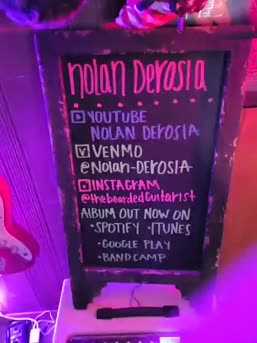 nolan Derosia
YOUTUBE
NOLAN DEROSIA
VENMO
@Nolan-DEROSIA
INSTAGRAM
@theboardedGuitarist
ALBUM OUT NOW ON
•SPOTIFY •ITUNES
•GOOGLE PLAY
•BANDCAMP